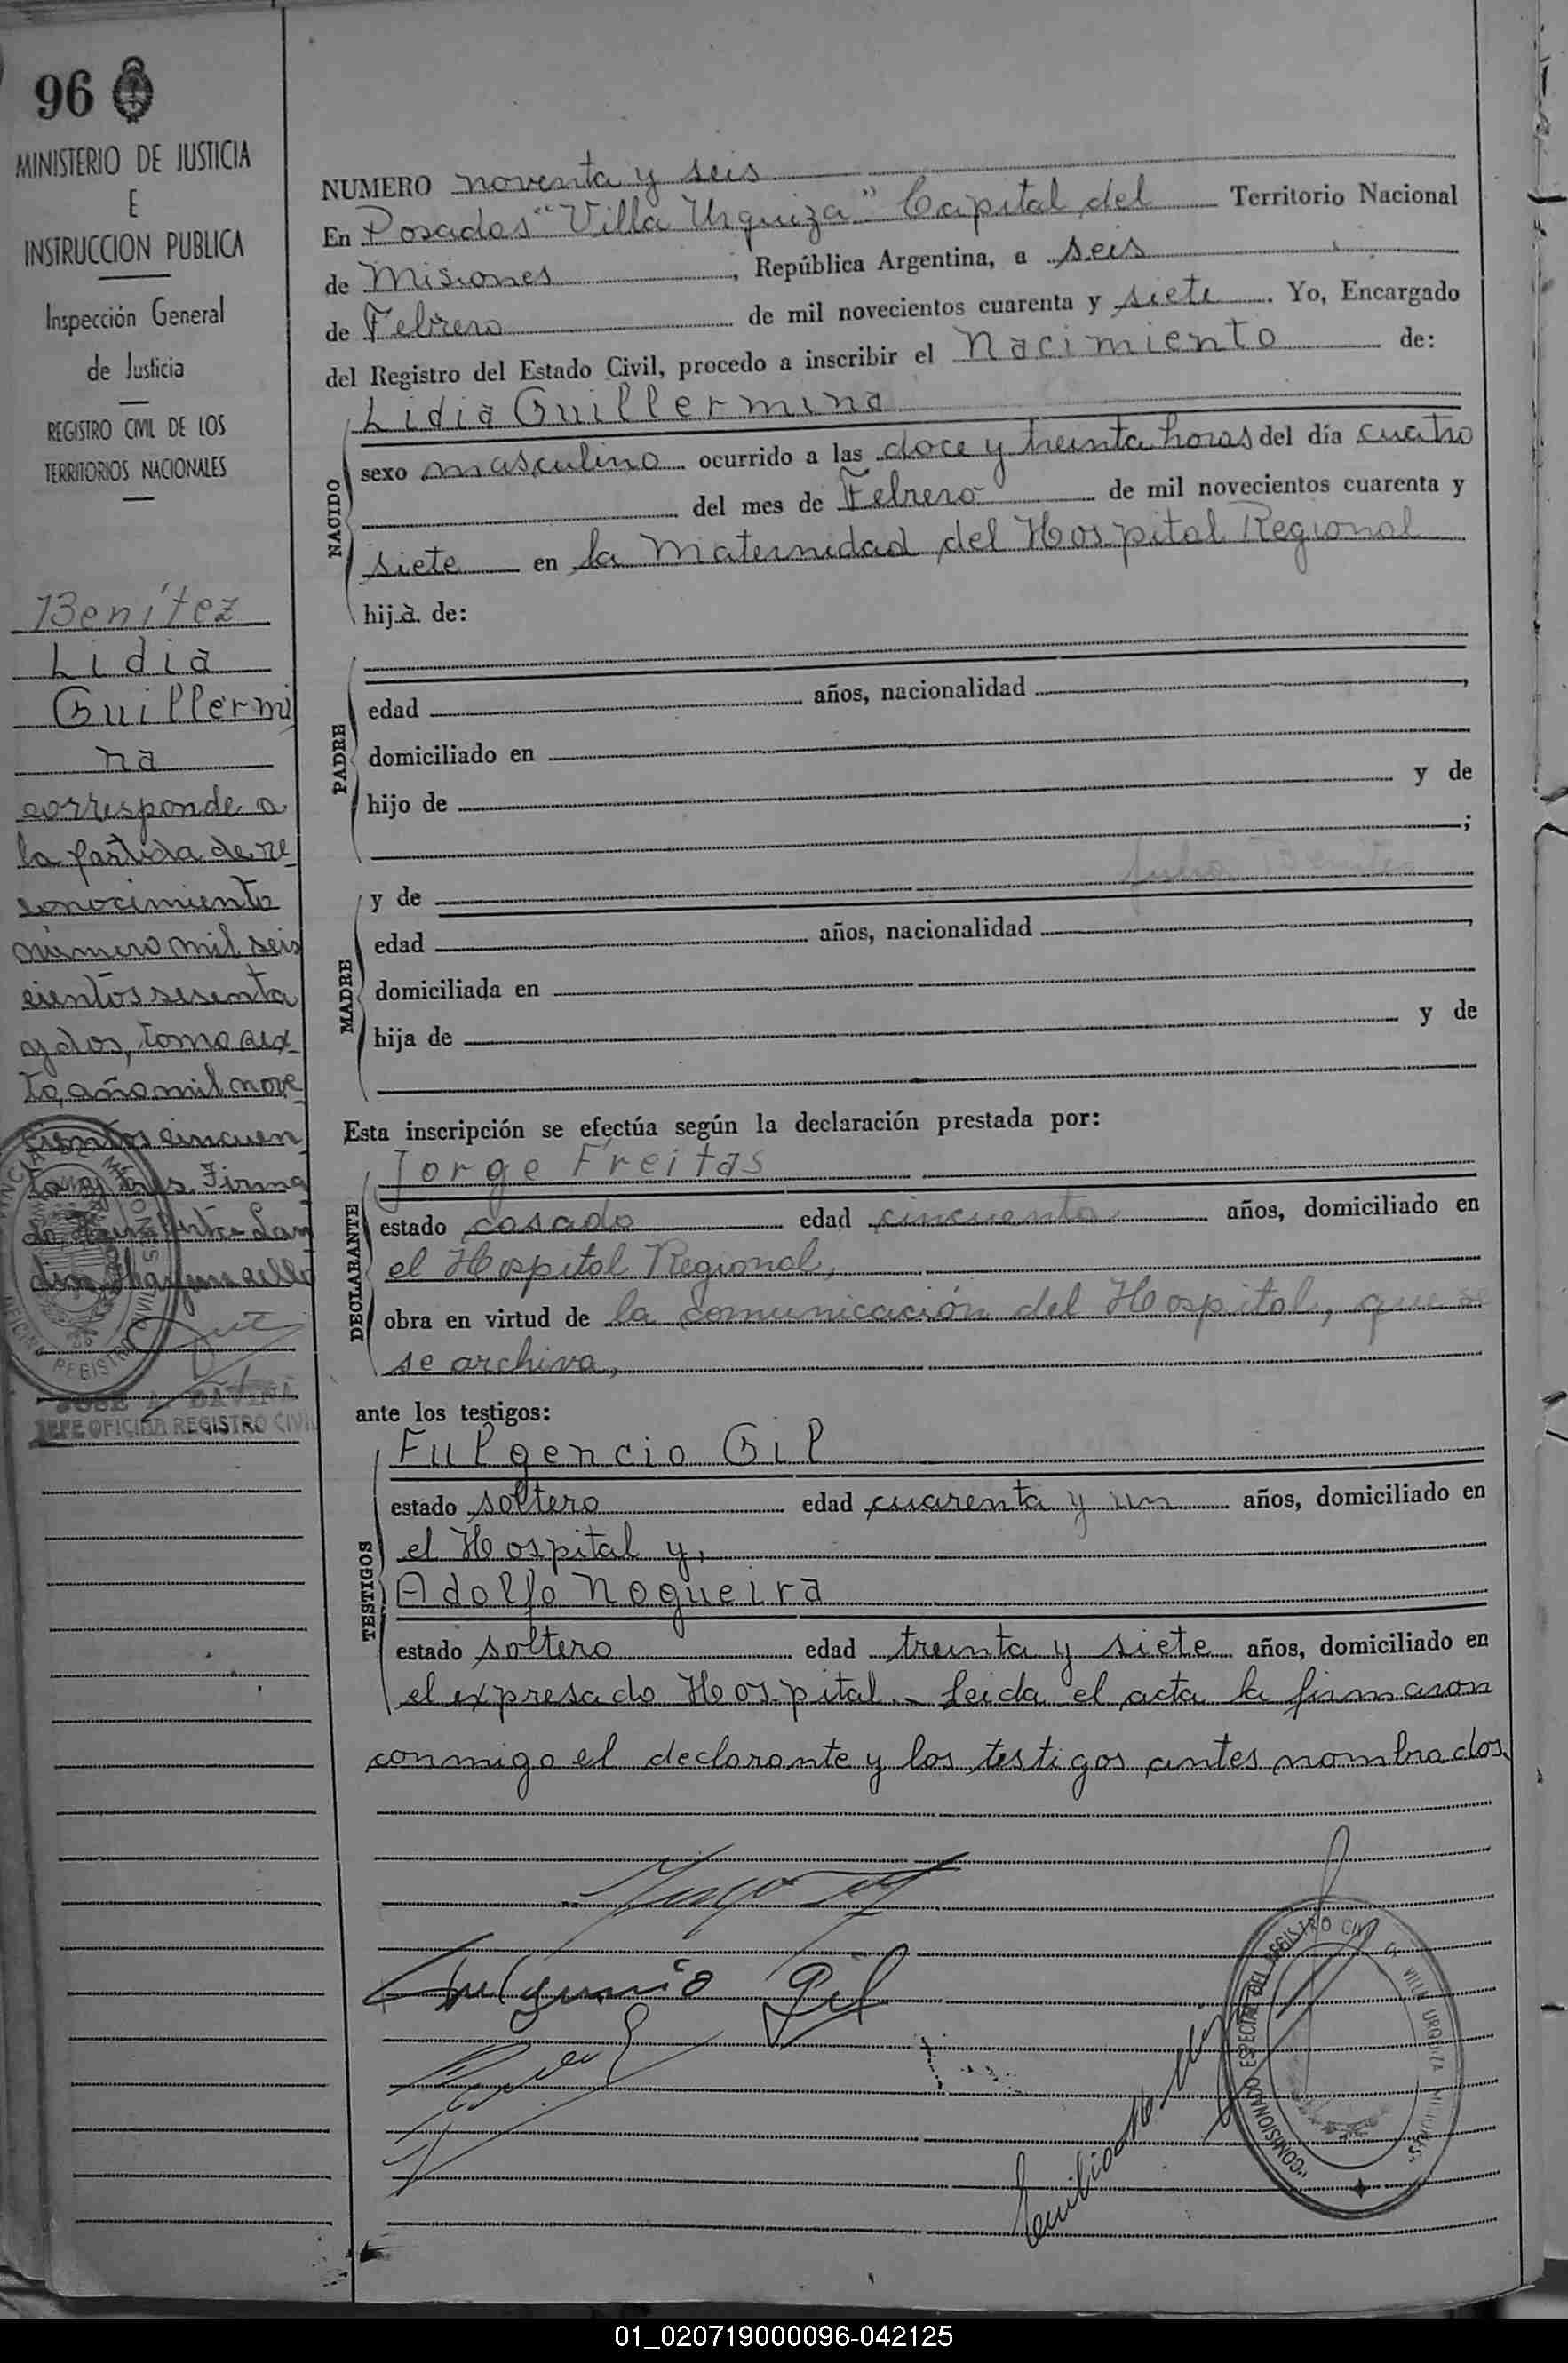 96
MINISTERIO DE JUSTICIA
E
INSTRUCCION PUBLICA
Inspección General
de Justicia
REGISTRO CIVIL DE LOS
TERRITORIOS NACIONALES
Benítez
Lidia
Guillermi
na
corresponde a
la partida de re
conocimiento
número mil seis
cientos sesenta
y dos, tomo sex
to, año mil nove
cientos cincuen
ta y tres. Firma
do
JOSE A.
JEFE OFICINA REGISTRO CIVIL
NUMERO noventa y seis
En Posadas "Villa Urquiza" Capital del Territorio Nacional
de Misiones, República Argentina, a seis
de Febrero de mil novecientos cuarenta y siete. Yo, Encargado
del Registro del Estado Civil, procedo a inscribir el Nacimiento de:
NACIDO
Lidia Guillermina
sexo masculino ocurrido a las doce y treinta horas del día cuatro
del mes de Febrero de mil novecientos cuarenta y
siete en la Maternidad del Hospital Regional
hija de:
PADRE
edad años, nacionalidad ,
domiciliado en
hijo de y de
;
MADRE
y de
edad años, nacionalidad ,
domiciliada en
hija de y de
Esta inscripción se efectúa según la declaración prestada por:
DECLARANTE
Jorge Freitas
estado casado edad cincuenta años, domiciliado en
el Hospital Regional,
obra en virtud de la comunicación del Hospital, que se
se archiva,
ante los testigos:
TESTIGOS
Fulgencio Gil
estado soltero edad cuarenta y un años, domiciliado en
el Hospital y,
Adolfo Nogueira
estado soltero edad treinta y siete años, domiciliado en
el expresado Hospital.- Leida el acta la firmaron
conmigo el declarante y los testigos antes nombrados.
Fulgencio Gil
COMISIONADO ESPECIAL DEL REGISTRO CIVIL VILLA URQUIZA
01_020719000096-042125